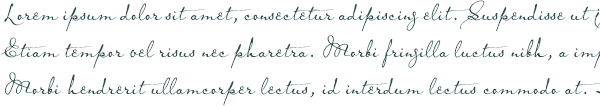 Lorem ipsum dolor sit amet, consectetur adipiscing elit. Suspendisse ut
Etiam tempor vel risus nec pharetra. Morbi fringilla luctus nibh, a imp
Morbi hendrerit ullamcorper lectus, id interdum lectus commodo at.